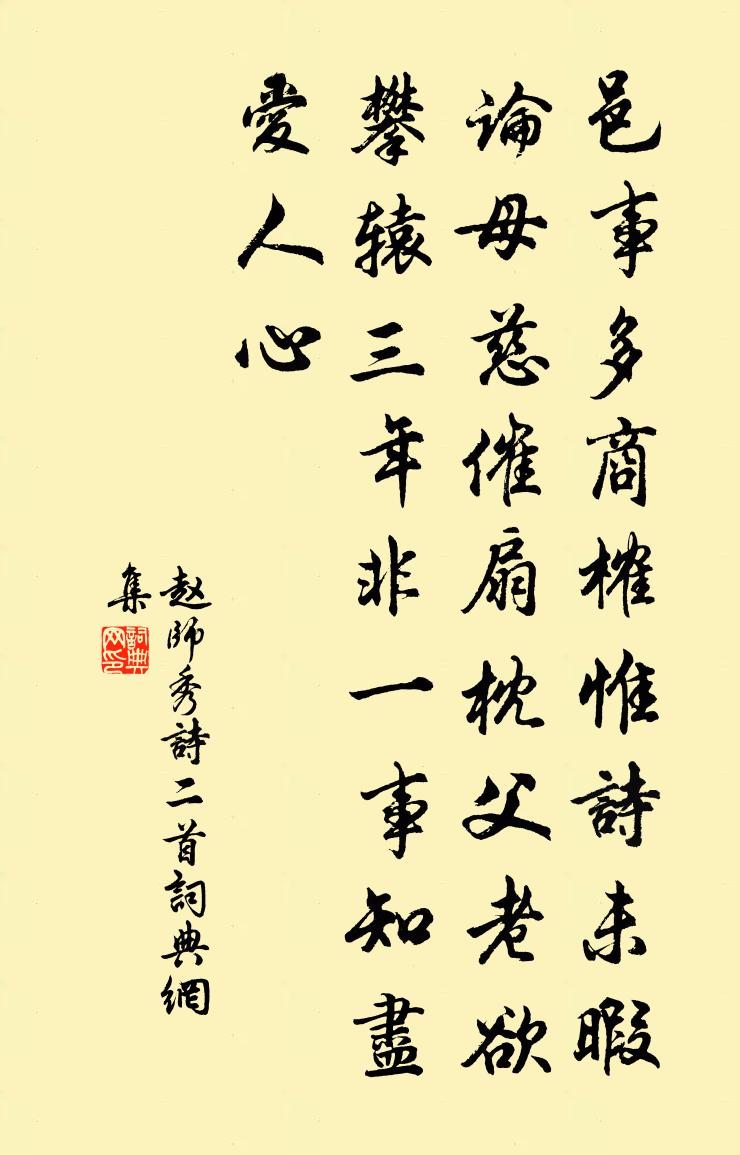 邑事多商榷惟詩未暇
論母慈催扇枕父老欲
攀辕三年非一事知盡
愛人心
赵師秀詩二首詞典網
集
詞典
网印